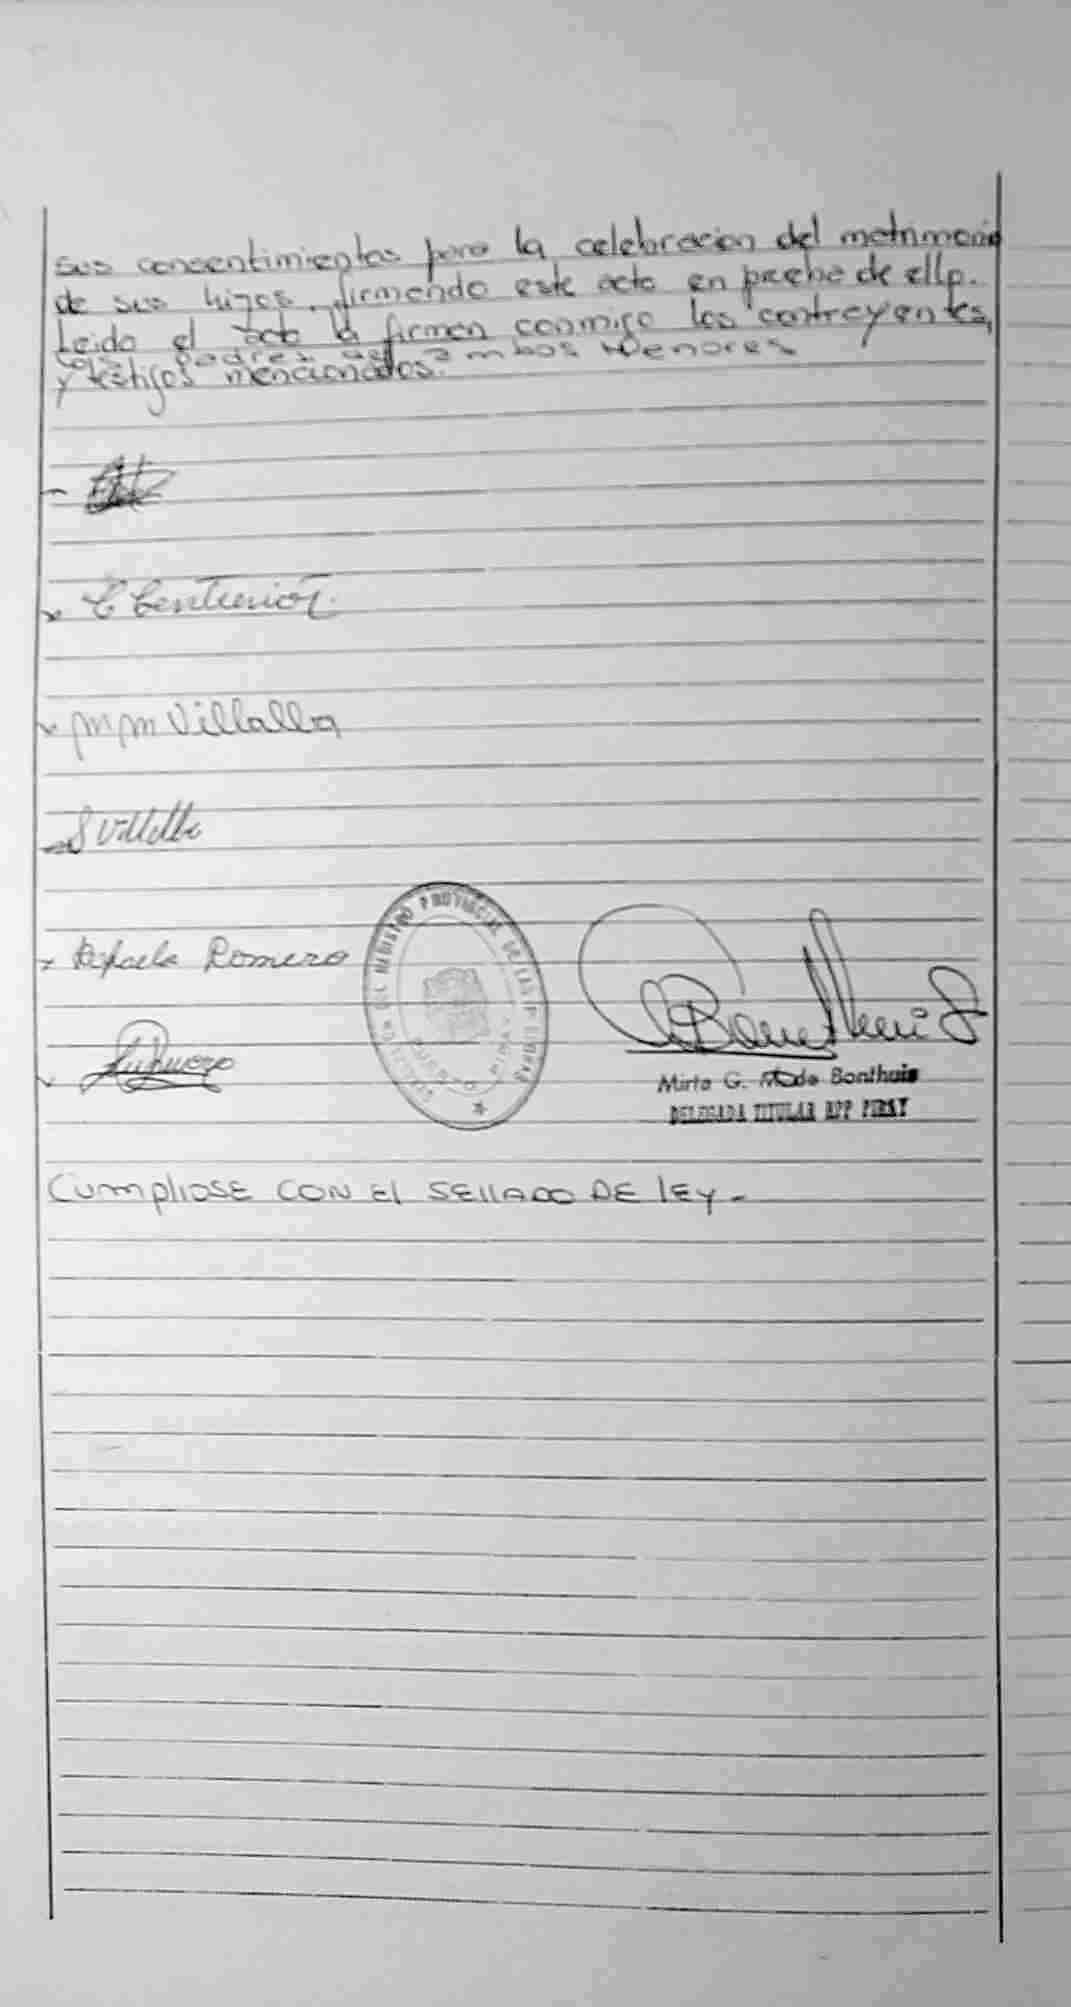 sus concentimientos para la celebracion del matrimonio
de sus hijos, firmando este acto en prueba de ello.
Leida el acta la firman conmigo los contrayentes,
los padres de ambos menores
y testigos mencionados.
C Centurion
M M Villalba
S Villalba
Rafaela Romero
DEL REGISTRO PROVINCIAL DE LAS PERSONAS
PUERTO PIRAY
Mirta G. Bonthuis
DELEGADA TITULAR RPP PIRAY
CUMPLIOSE CON El SEllADO DE lEY -